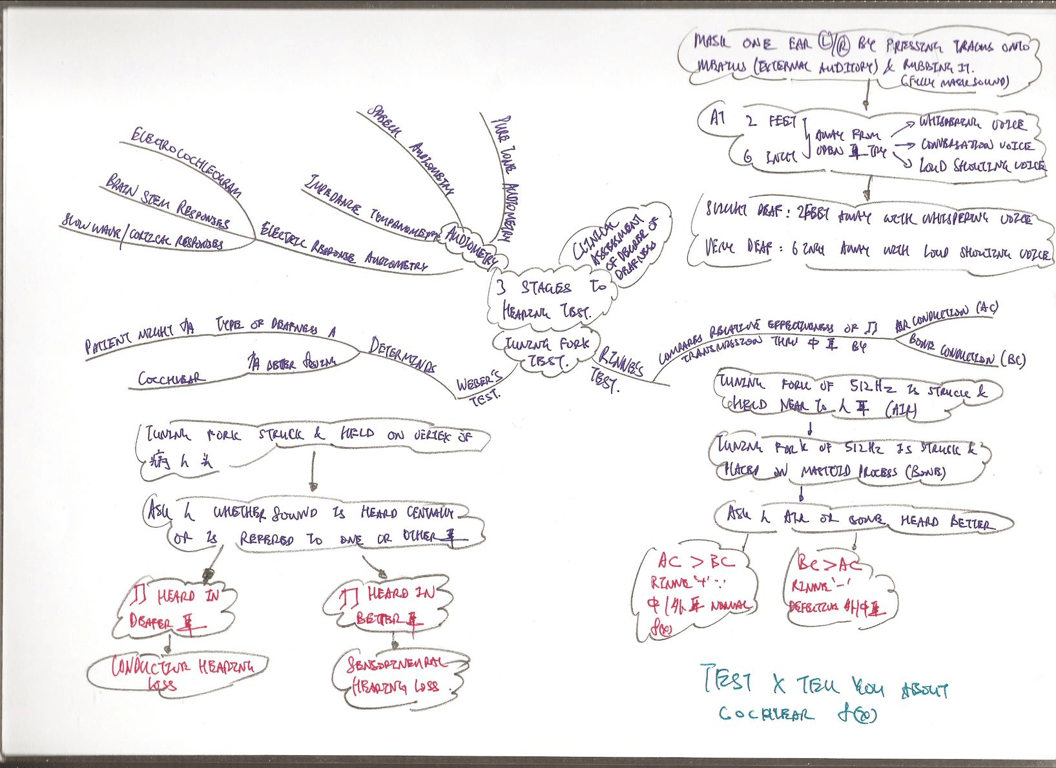 MASK ONE EAR Ⓛ/Ⓡ BY PRESSING TRAGUS ONTO
MEATUS (EXTERNAL AUDITORY) & RUBBING IT.
(FULLY MASK SOUND)
AT 2 FEET
6 INCH
AWAY FROM
OPEN 耳 TRY
WHISPERING VOICE
CONVERSATION VOICE
LOUD SHOUTING VOICE
DEAF : 2FEET AWAY WITH WHISPERING VOICE
VERY DEAF : 6 INCH AWAY WITH LOUD SHOUTING VOICE
3 STAGES TO
HEARING TEST.
CLINICAL
ASSESSMENT
OF DEGREE OF
DEAFNESS
AUDIOMETRY
PURE TONE AUDIOMETRY
SPEECH AUDIOMETRY
IMPEDANCE
ELECTRIC RESPONSE AUDIOMETRY
ELECTROCOCHLEOGRAM
BRAIN STEM RESPONSES
SLOW WAVE/CORTICAL RESPONSES
TUNING FORK
TEST.
WEBER'S
TEST.
DETERMINES
PATIENT MIGHT TYPE OF DEAFNESS A
COCCHLEAR
RINNE'S
TEST.
COMPARES RELATIVE EFFECTIVENESS OF
TRANSMISSION THRU 中 耳 BY
AIR CONDUCTION (AC)
BONE CONDUCTION (BC)
TUNING FORK OF 512Hz IS STRUCK &
HELD NEAR TO 人 耳 (AIR)
TUNING FORK OF 512Hz IS STRUCK &
PLACED ON MASTOID PROCESS (BONE)
ASK 人 AIR OR BONE HEARD BETTER
AC > BC
RINNE '+' ∵
中/外 耳 NORMAL
f(x)
BC > AC
RINNE '-'
DEFECTIVE 外/中耳
TEST X TELL YOU ABOUT
COCHLEAR f(x)
TUNING FORK STRUCK & HELD ON VERTEX OF
病人头
ASK 人 WHETHER SOUND IS HEARD CENTRALLY
OR IS REFERED TO ONE OR OTHER 耳
HEARD IN
DEAFER 耳
CONDUCTIVE HEARING
LOSS
HEARD IN
BETTER 耳
SENSORINEURAL
HEARING LOSS